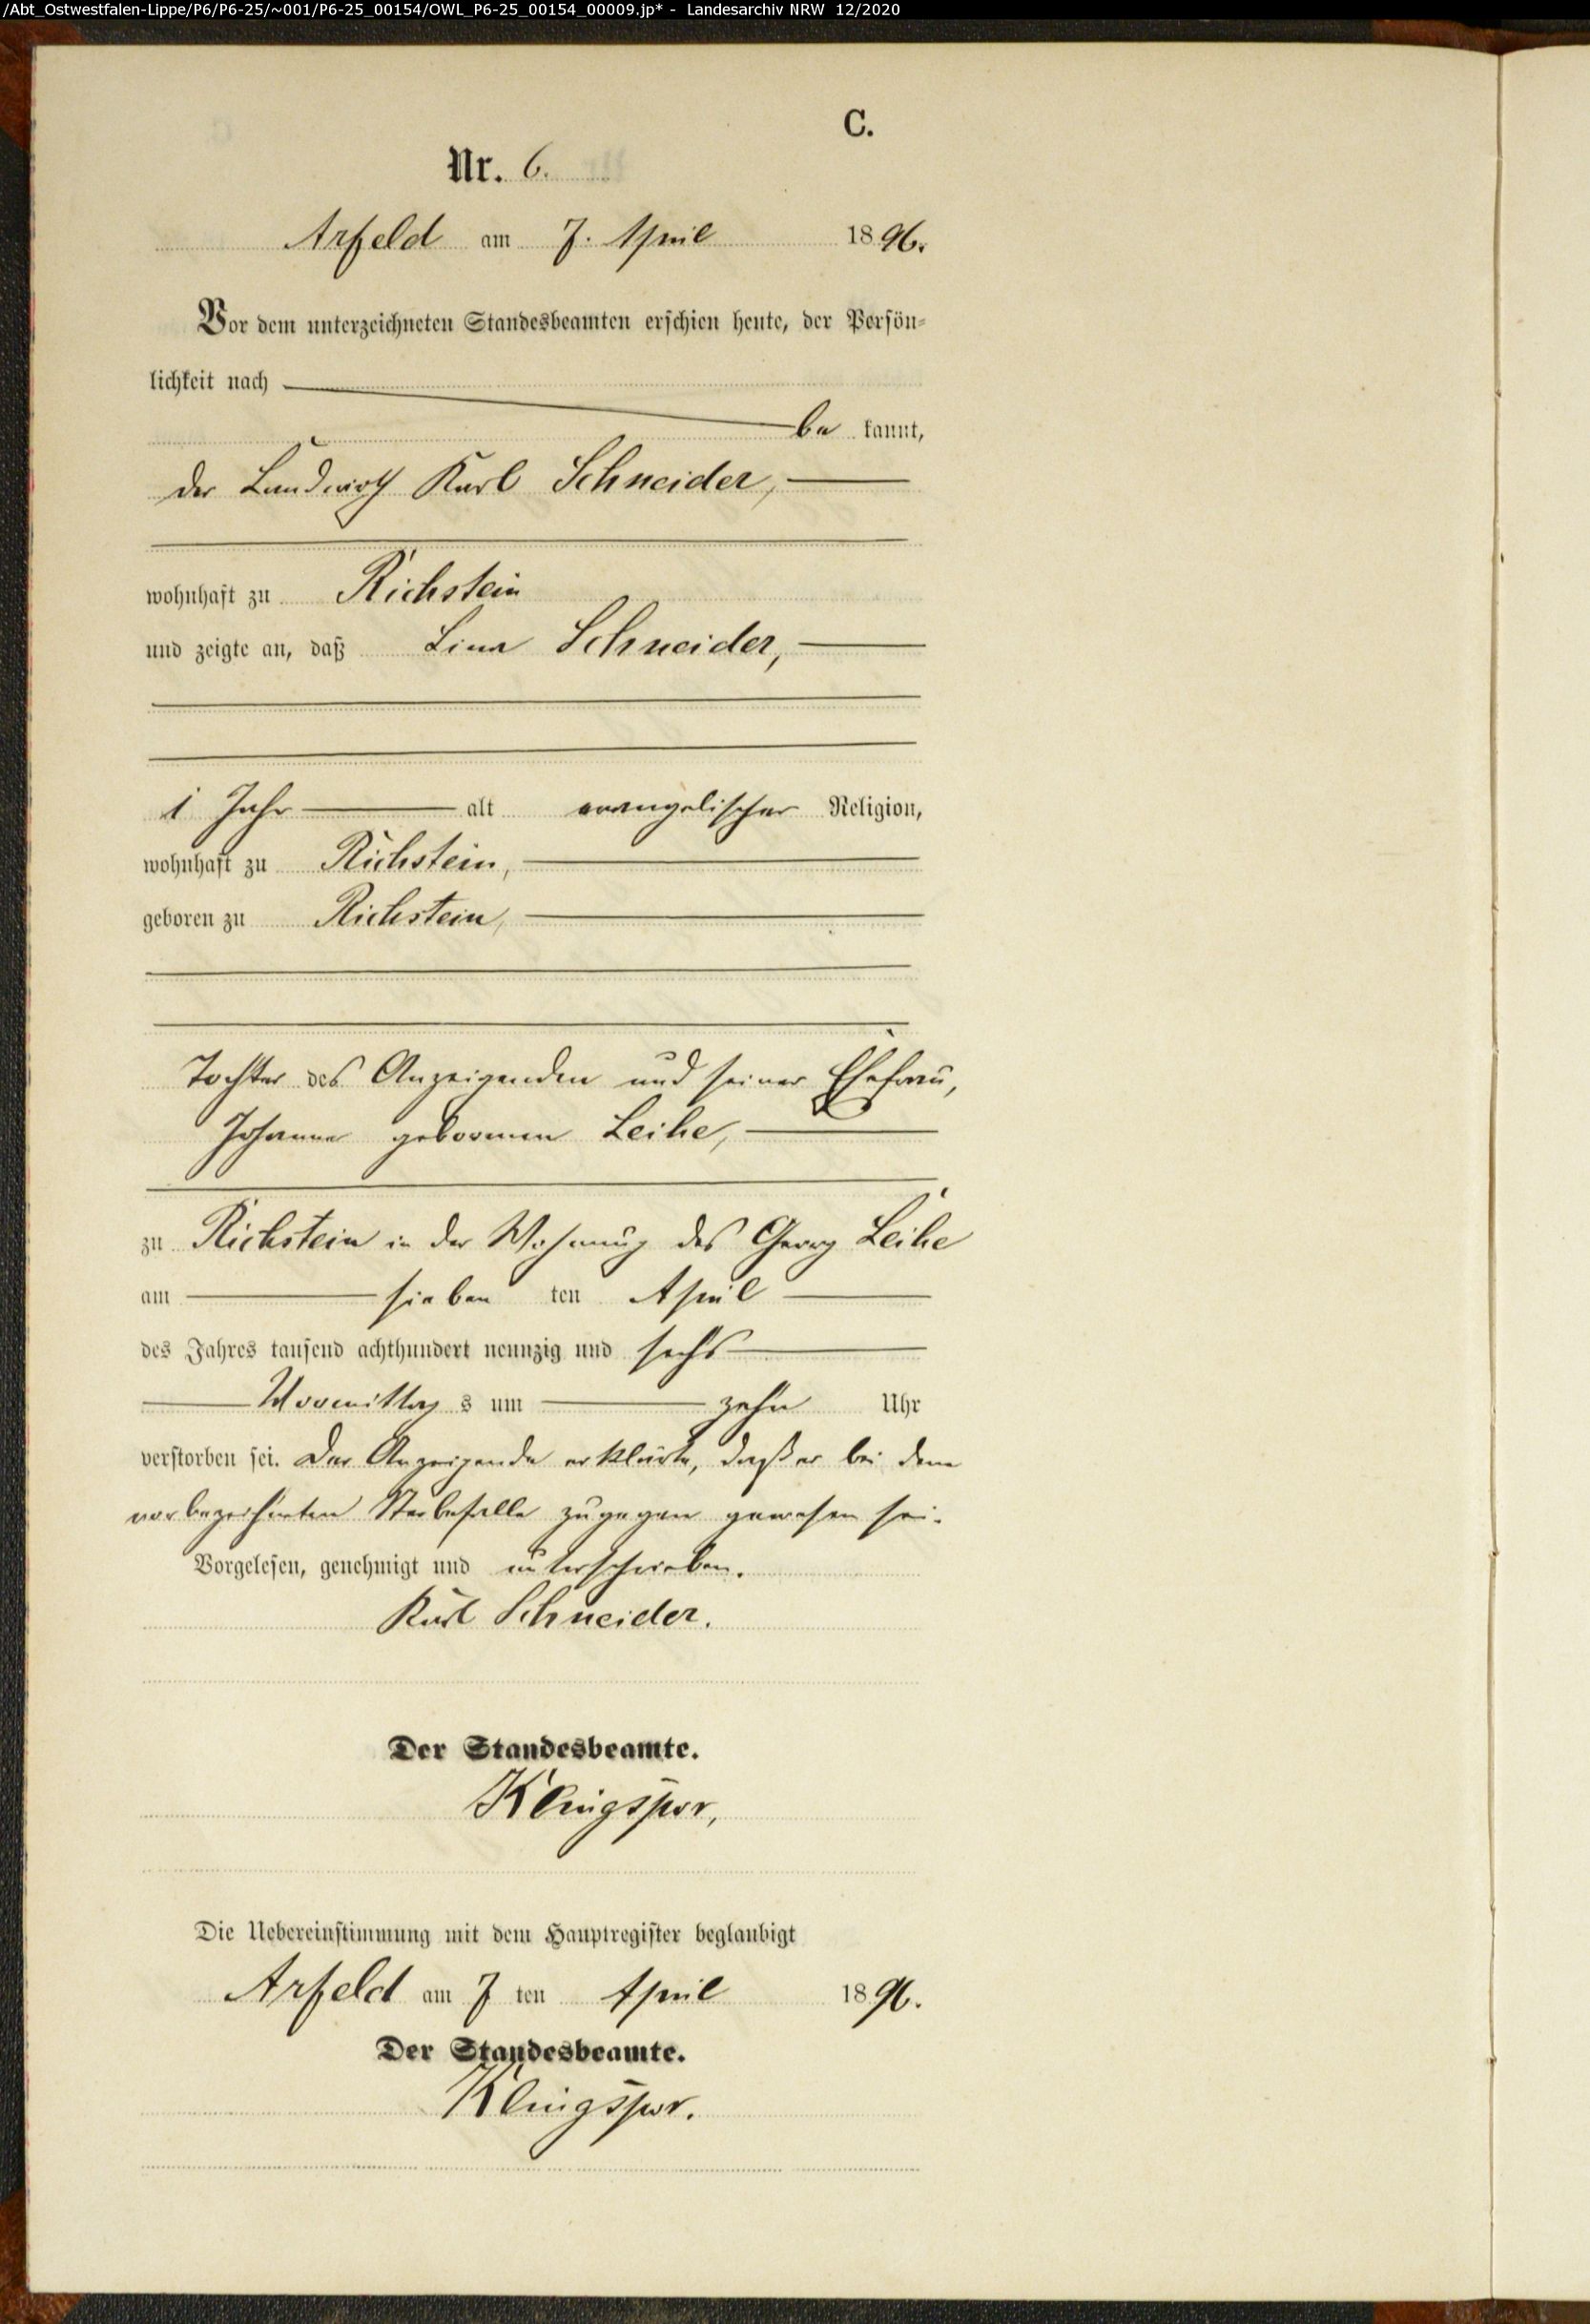 /Abt_Ostwestfalen-Lippe/P6/P6-25/~001/P6-25_00154/OWL_P6-25_00154_00009.jp* - Landesarchiv NRW 12/2020
C.
Nr. 6.
Arfeld am 7. April 1896.
Vor dem unterzeichneten Standesbeamten erschien heute, der Persön-
lichkeit nach
be kannt,
der Landwirth Karl Schneider,
wohnhaft zu Richstein
und zeigte an, daß Lina Schneider,
1 Jahr alt evangelischer Religion,
wohnhaft zu Richstein,
geboren zu Richstein,
Tochter des Anzeigenden und seiner Ehefrau,
Johanne geborenen Leihe,
zu Richstein in der Wohnung des Georg Leihe
am sieben ten April
des Jahres tausend achthundert neunzig und sechs
Vormittag s um zehn Uhr
verstorben sei. Der Anzeigende erklärte, daß er bei dem
vorbezeichneten Sterbefalle zugegen gewesen sei.
Vorgelesen, genehmigt und unterschrieben.
Karl Schneider.
Der Standesbeamte.
Klingspor,
Die Uebereinstimmung mit dem Hauptregister beglaubigt
Arfeld am 7 ten April 1896.
Der Standesbeamte.
Klingspor.